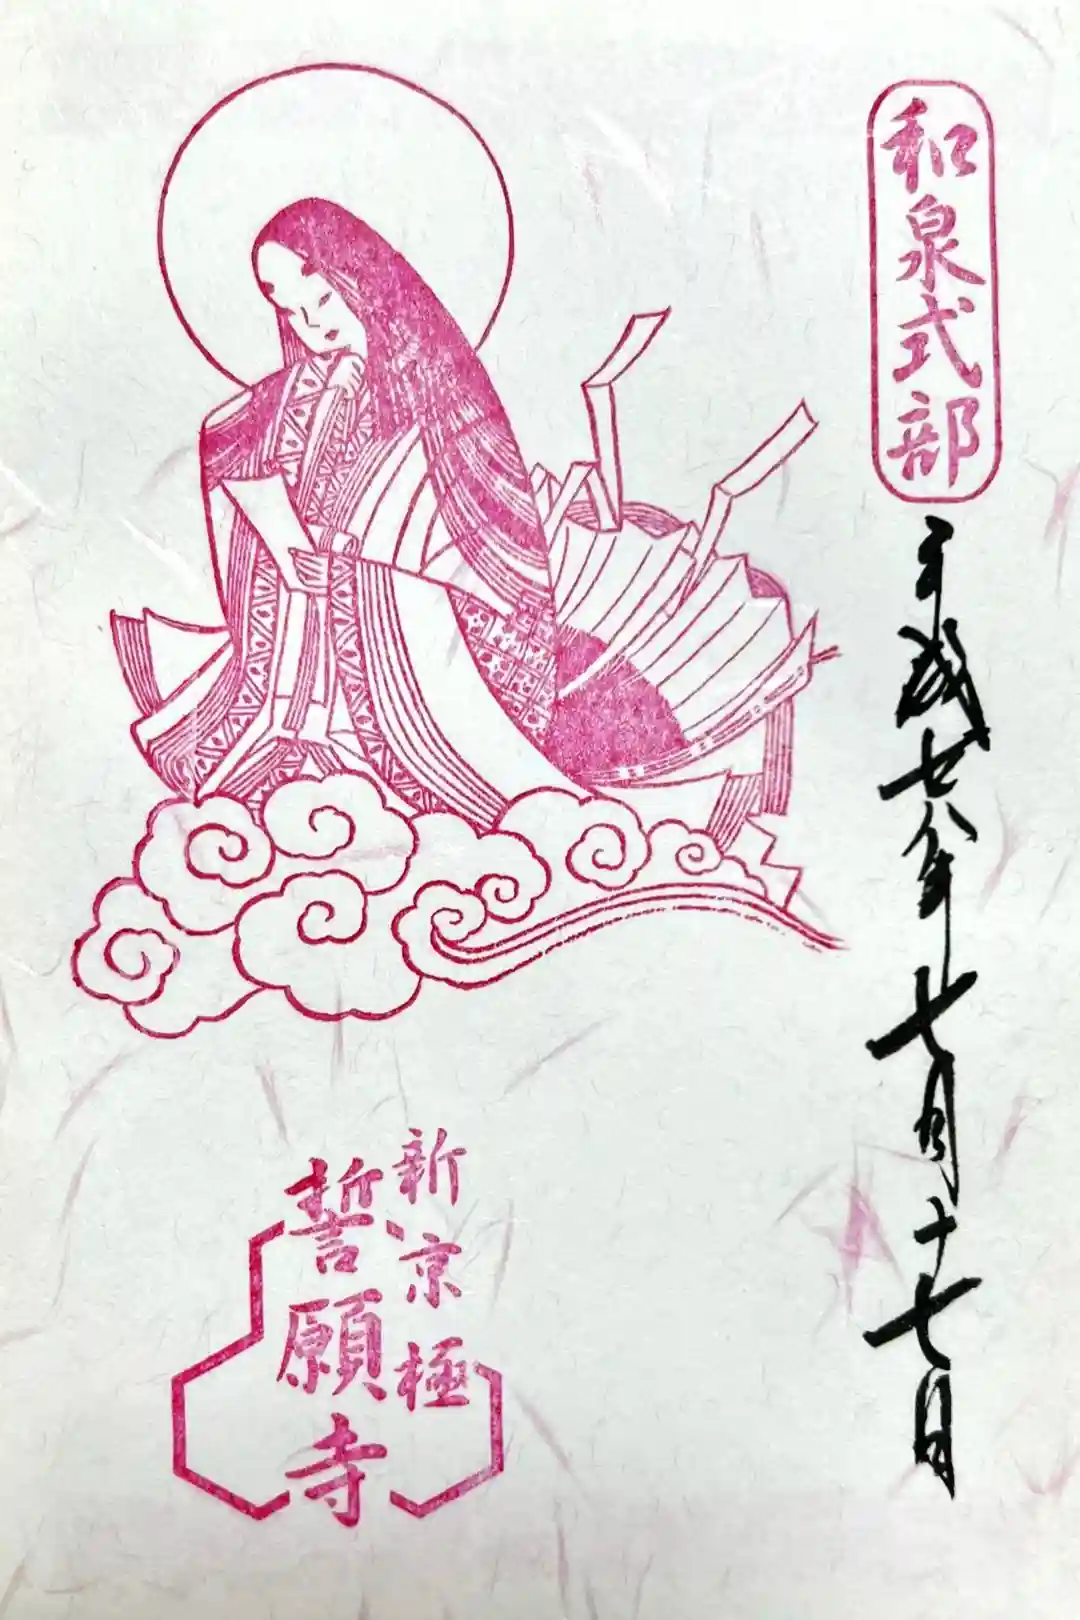 和泉式部
平成廿八年七月十七日
新京極
誓願寺